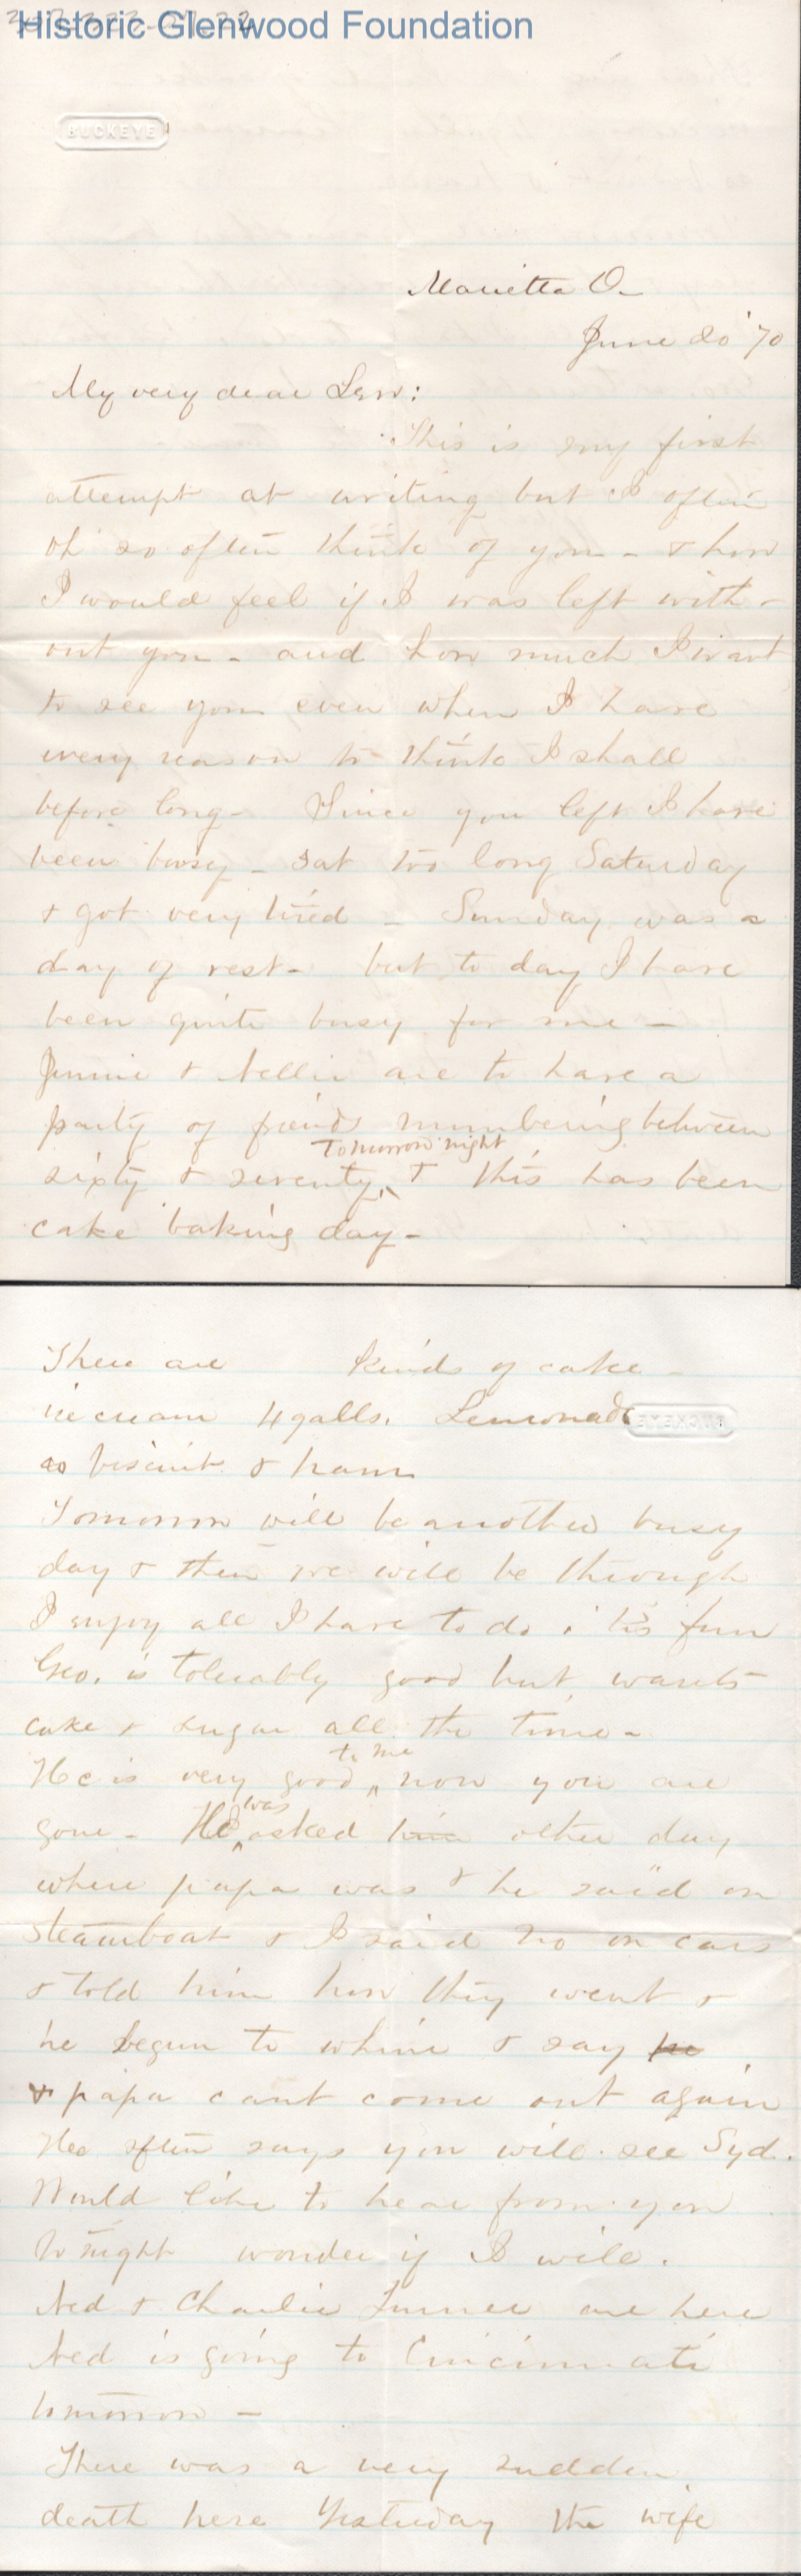 Historic Glenwood Foundation
BUCKEYE
Marietta O-
June 20 '70
My very dear Lew:
This is my first
attempt at writing but I often
oh so often think of you - & how
I would feel if I was left with-
out you - and how much I want
to see you even when I have
every reason to think I shall
before long - Since you left I have
been busy - sat too long Saturday
& got very tired - Sunday was a
day of rest - but to day I have
been quite busy for me -
Jennie & Nellie are to have a
party of friends numbering between
Tomorrow night
sixty & seventy, & this has been
cake baking day -
There are kinds of cake -
ice cream 4 galls. Lemonade
BUCKEYE
biscuit & ham
Tomorrow will be another busy
day & then we will be through
I enjoy all I have to do, 'tis fun
Geo. is tolerably good but wants
cake & sugar all the time -
to me
He is very good now you are
was
gone - He asked him other day
where papa was & he said on
steamboat & I said no on cars
& told him how they went &
he begun to whine & say he
& papa cant come out again
He often says you will see Syd.
Would like to hear from you
to night wonder if I will.
Ned & Charlie Turner are here
Ned is going to Cincinnati
tomorrow -
There was a very sudden
death here Yesterday the wife